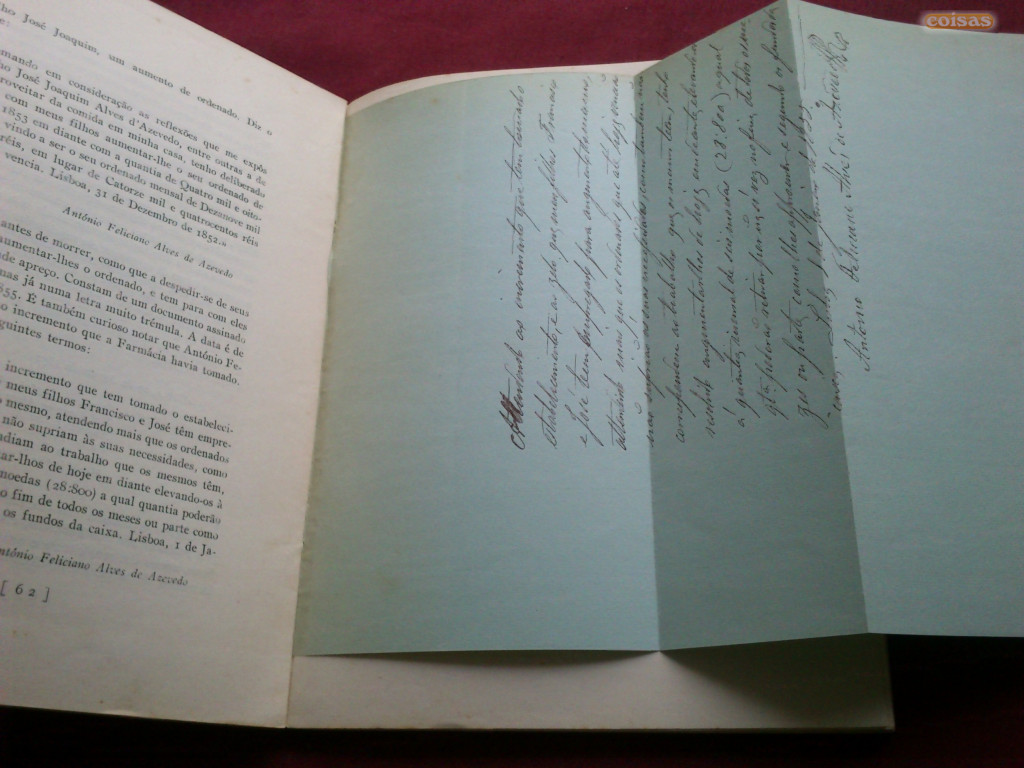 ho José Joaquim, um aumento de ordenado. Diz o
e:
mando em consideração as reflexões que me expôs
ho José Joaquim Alves d'Azevedo, entre outras a de
roveitar da comida em minha casa, tenho deliberado
com meus filhos aumentar-lhe o seu ordenado de
1853 em diante com a quantia de Quatro mil e oito-
vindo a ser o seu ordenado mensal de Dezanove mil
réis, em lugar de Catorze mil e quatrocentos réis
vencia. Lisboa, 31 de Dezembro de 1852.»
António Feliciano Alves de Azevedo
antes de morrer, como que a despedir-se de seus
aumentar-lhes o ordenado, e tem para com eles
de apreço. Constam de um documento assinado
mas já numa letra muito trémula. A data é de
855. É também curioso notar que António Fe-
o incremento que a Farmácia havia tomado.
guintes termos:
incremento que tem tomado o estabeleci-
meus filhos Francisco e José têm empre-
o mesmo, atendendo mais que os ordenados
não supriam às suas necessidades, como
ndiam ao trabalho que os mesmos têm,
tar-lhos de hoje em diante elevando-os à
moedas (28:800) a qual quantia poderão
o fim de todos os meses ou parte como
os fundos da caixa. Lisboa, 1 de Ja-
ntónio Feliciano Alves de Azevedo
[ 62 ]
Attendendo ao incremento que tem tomado
o estabelecimento, e ao zelo que meus filhos Francisco
e José tem empregado para augmento do mesmo,
attendendo mais que os ordenados que até hoje
não suprião as suas necessidades, como tambem não
correspondem ao trabalho que os mesmos tem, tenho
resolvido augmentar-lhos de hoje em diante elevando-os
á quantia mensal de seis moedas (28:800) a qual
qtia poderão retirar por uma vez no fim de todos os mezes
ou parte como lhes approuver e segundo os fundos da
caixa. Lxa 1 de Janeiro de 1855
Antonio Feliciano Alves de Azevedo
coisas